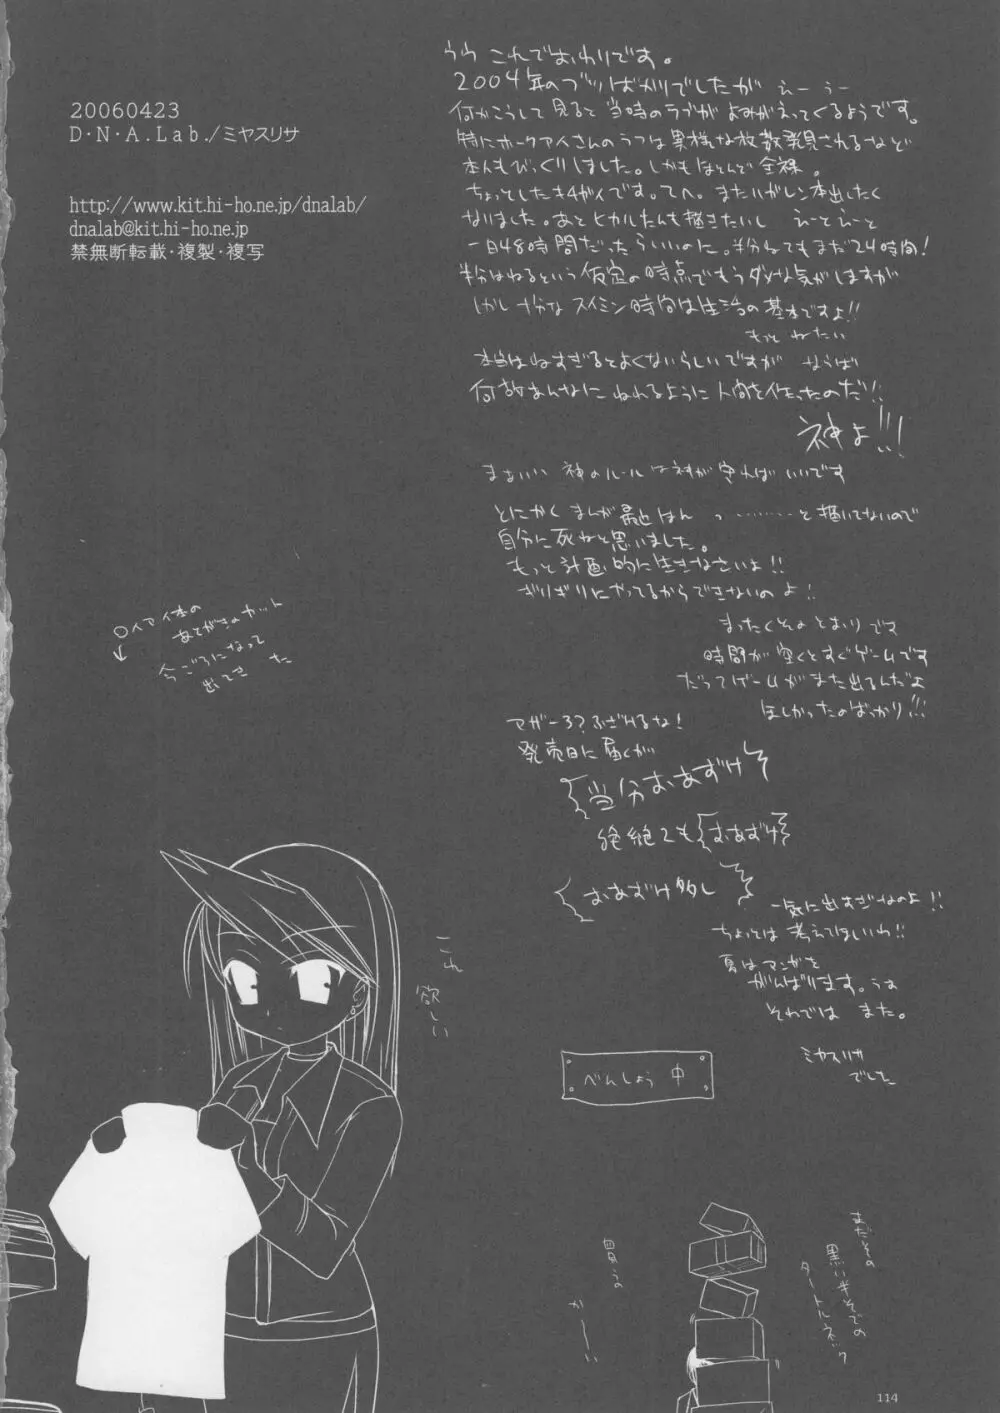 20060423
D・N・A.Lab./ミヤスリサ
http://www.kit.hi-ho.ne.jp/dnalab/
dnalab@kit.hi-ho.ne.jp
禁無断転載・複製・複写
うう これでおわりです。
2004年のブツばかりでしたが えー うー
何かこうして見ると当時のラブがよみがえってくるようです。
特にホークアイさんのラフは異様な枚数発見されるなど
本人もびっくりしました。しかもほとんど全裸。
ちょっとしたキ4ガイです。てへ。またハガレン本出したく
なりました。あとヒカルたんも描きたいし えーとえーと
一日48時間だったらいいのに。半分ねてもまだ24時間!
半分はねるという仮定の時点でもうダメな気がしますが
しかし十分なスイミン時間は生活の基本ですよ!!
もっと ねたい
本当はねすぎるとよくないらしいですが ならば
何故あんなにねれるように人間を作ったのだ!!
神よ!!!
まあいい 神のルールは神が守ればいいです
とにかく まんが最近はん っ………と描いてないので
自分に死ねと思いました。
もっと計画的に生きなさいよ!!
ギリギリにやってるからできないのよ!!
まったくそのとおりです
時間が空くとすぐゲームです
だってゲームがまた出るんだよ
ほしかったのばっかり!!!
マザー3?ふざけるな!
発売日に届くが
当分おあずけ
絶絶ても おあずけ
おあずけ多し
一気に出すぎなのよ!!
ちょっとは考えてほしいわ!!
夏はマンガを
がんばります。うお
それでは また。
ミヤスリサ
でした
〇イアイ本の
あとがきのカット
今ごろになって
出てきた
これ
欲しい
べんしょう中
買うの
かーい
まだその
黒い半そでの
タートルネック
114